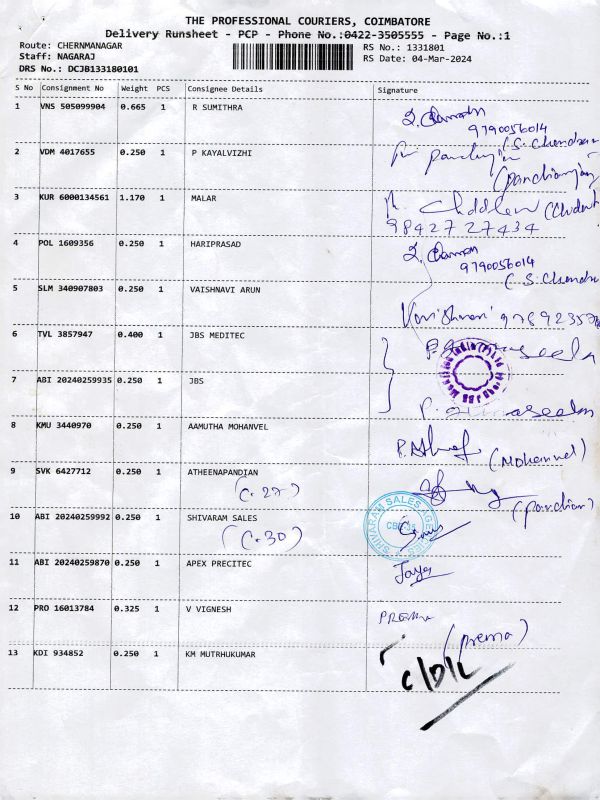 THE PROFESSIONAL COURIERS, COIMBATORE
Delivery Runsheet - PCP - Phone No.:0422-3505555 - Page No.:1
Route: CHERNMANAGAR
RS No.: 1331801
Staff: NAGARAJ
RS Date: 04-Mar-2024
DRS No.: DCJB133180101
S No Consignment No Weight PCS Consignee Details Signature
1 VNS 505099904 0.665 1 R SUMITHRA
9790056014
2 VDM 4017655 0.250 1 P KAYALVIZHI
(S. Chendran
3 KUR 6000134561 1.170 1 MALAR
98427 27434
4 POL 1609356 0.250 1 HARIPRASAD
9790056014
(S. Chendra
5 SLM 340907803 0.250 1 VAISHNAVI ARUN
6 TVL 3857947 0.400 1 JBS MEDITEC
7 ABI 20240259935 0.250 1 JBS
8 KMU 3440970 0.250 1 AAMUTHA MOHANVEL
(Mohanvel)
9 SVK 6427712 0.250 1 ATHEENAPANDIAN
(C.27)
(pandian)
10 ABI 20240259992 0.250 1 SHIVARAM SALES
(C.30)
SHIVARAM SALES AGENCIES
11 ABI 20240259870 0.250 1 APEX PRECITEC
Jaya
12 PRO 16013784 0.325 1 V VIGNESH
PREMA
(prema)
13 KDI 934852 0.250 1 KM MUTRHUKUMAR
C/D/L